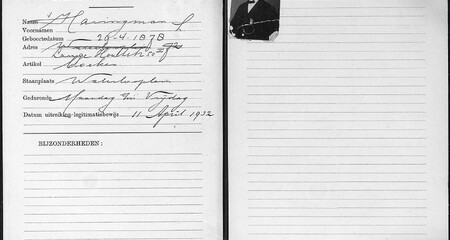 Naam Haringman S
Voornamen
Geboortedatum 26-4-1878
Adres
Lange Houtstr 50
Artikel Boeken
Staanplaats Waterlooplein
Gedurende Maandag t/m Vrijdag
Datum uitreiking-legitimatiebewijs 11 April 1932
BIJZONDERHEDEN: